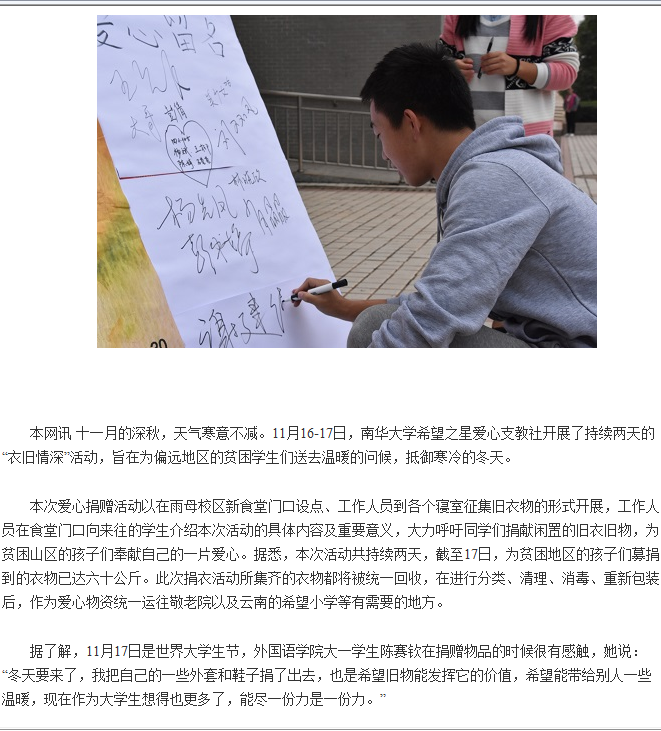 爱心留名
本网讯 十一月的深秋，天气寒意不减。11月16-17日，南华大学希望之星爱心支教社开展了持续两天的
“衣旧情深”活动，旨在为偏远地区的贫困学生们送去温暖的问候，抵御寒冷的冬天。
本次爱心捐赠活动以在雨母校区新食堂门口设点、工作人员到各个寝室征集旧衣物的形式开展，工作人
员在食堂门口向来往的学生介绍本次活动的具体内容及重要意义，大力呼吁同学们捐献闲置的旧衣旧物，为
贫困山区的孩子们奉献自己的一片爱心。据悉，本次活动共持续两天，截至17日，为贫困地区的孩子们募捐
到的衣物已达六十公斤。此次捐衣活动所集齐的衣物都将被统一回收，在进行分类、清理、消毒、重新包装
后，作为爱心物资统一运往敬老院以及云南的希望小学等有需要的地方。
据了解，11月17日是世界大学生节，外国语学院大一学生陈赛钦在捐赠物品的时候很有感触，她说：
“冬天要来了，我把自己的一些外套和鞋子捐了出去，也是希望旧物能发挥它的价值，希望能带给别人一些
温暖，现在作为大学生想得也更多了，能尽一份力是一份力。”